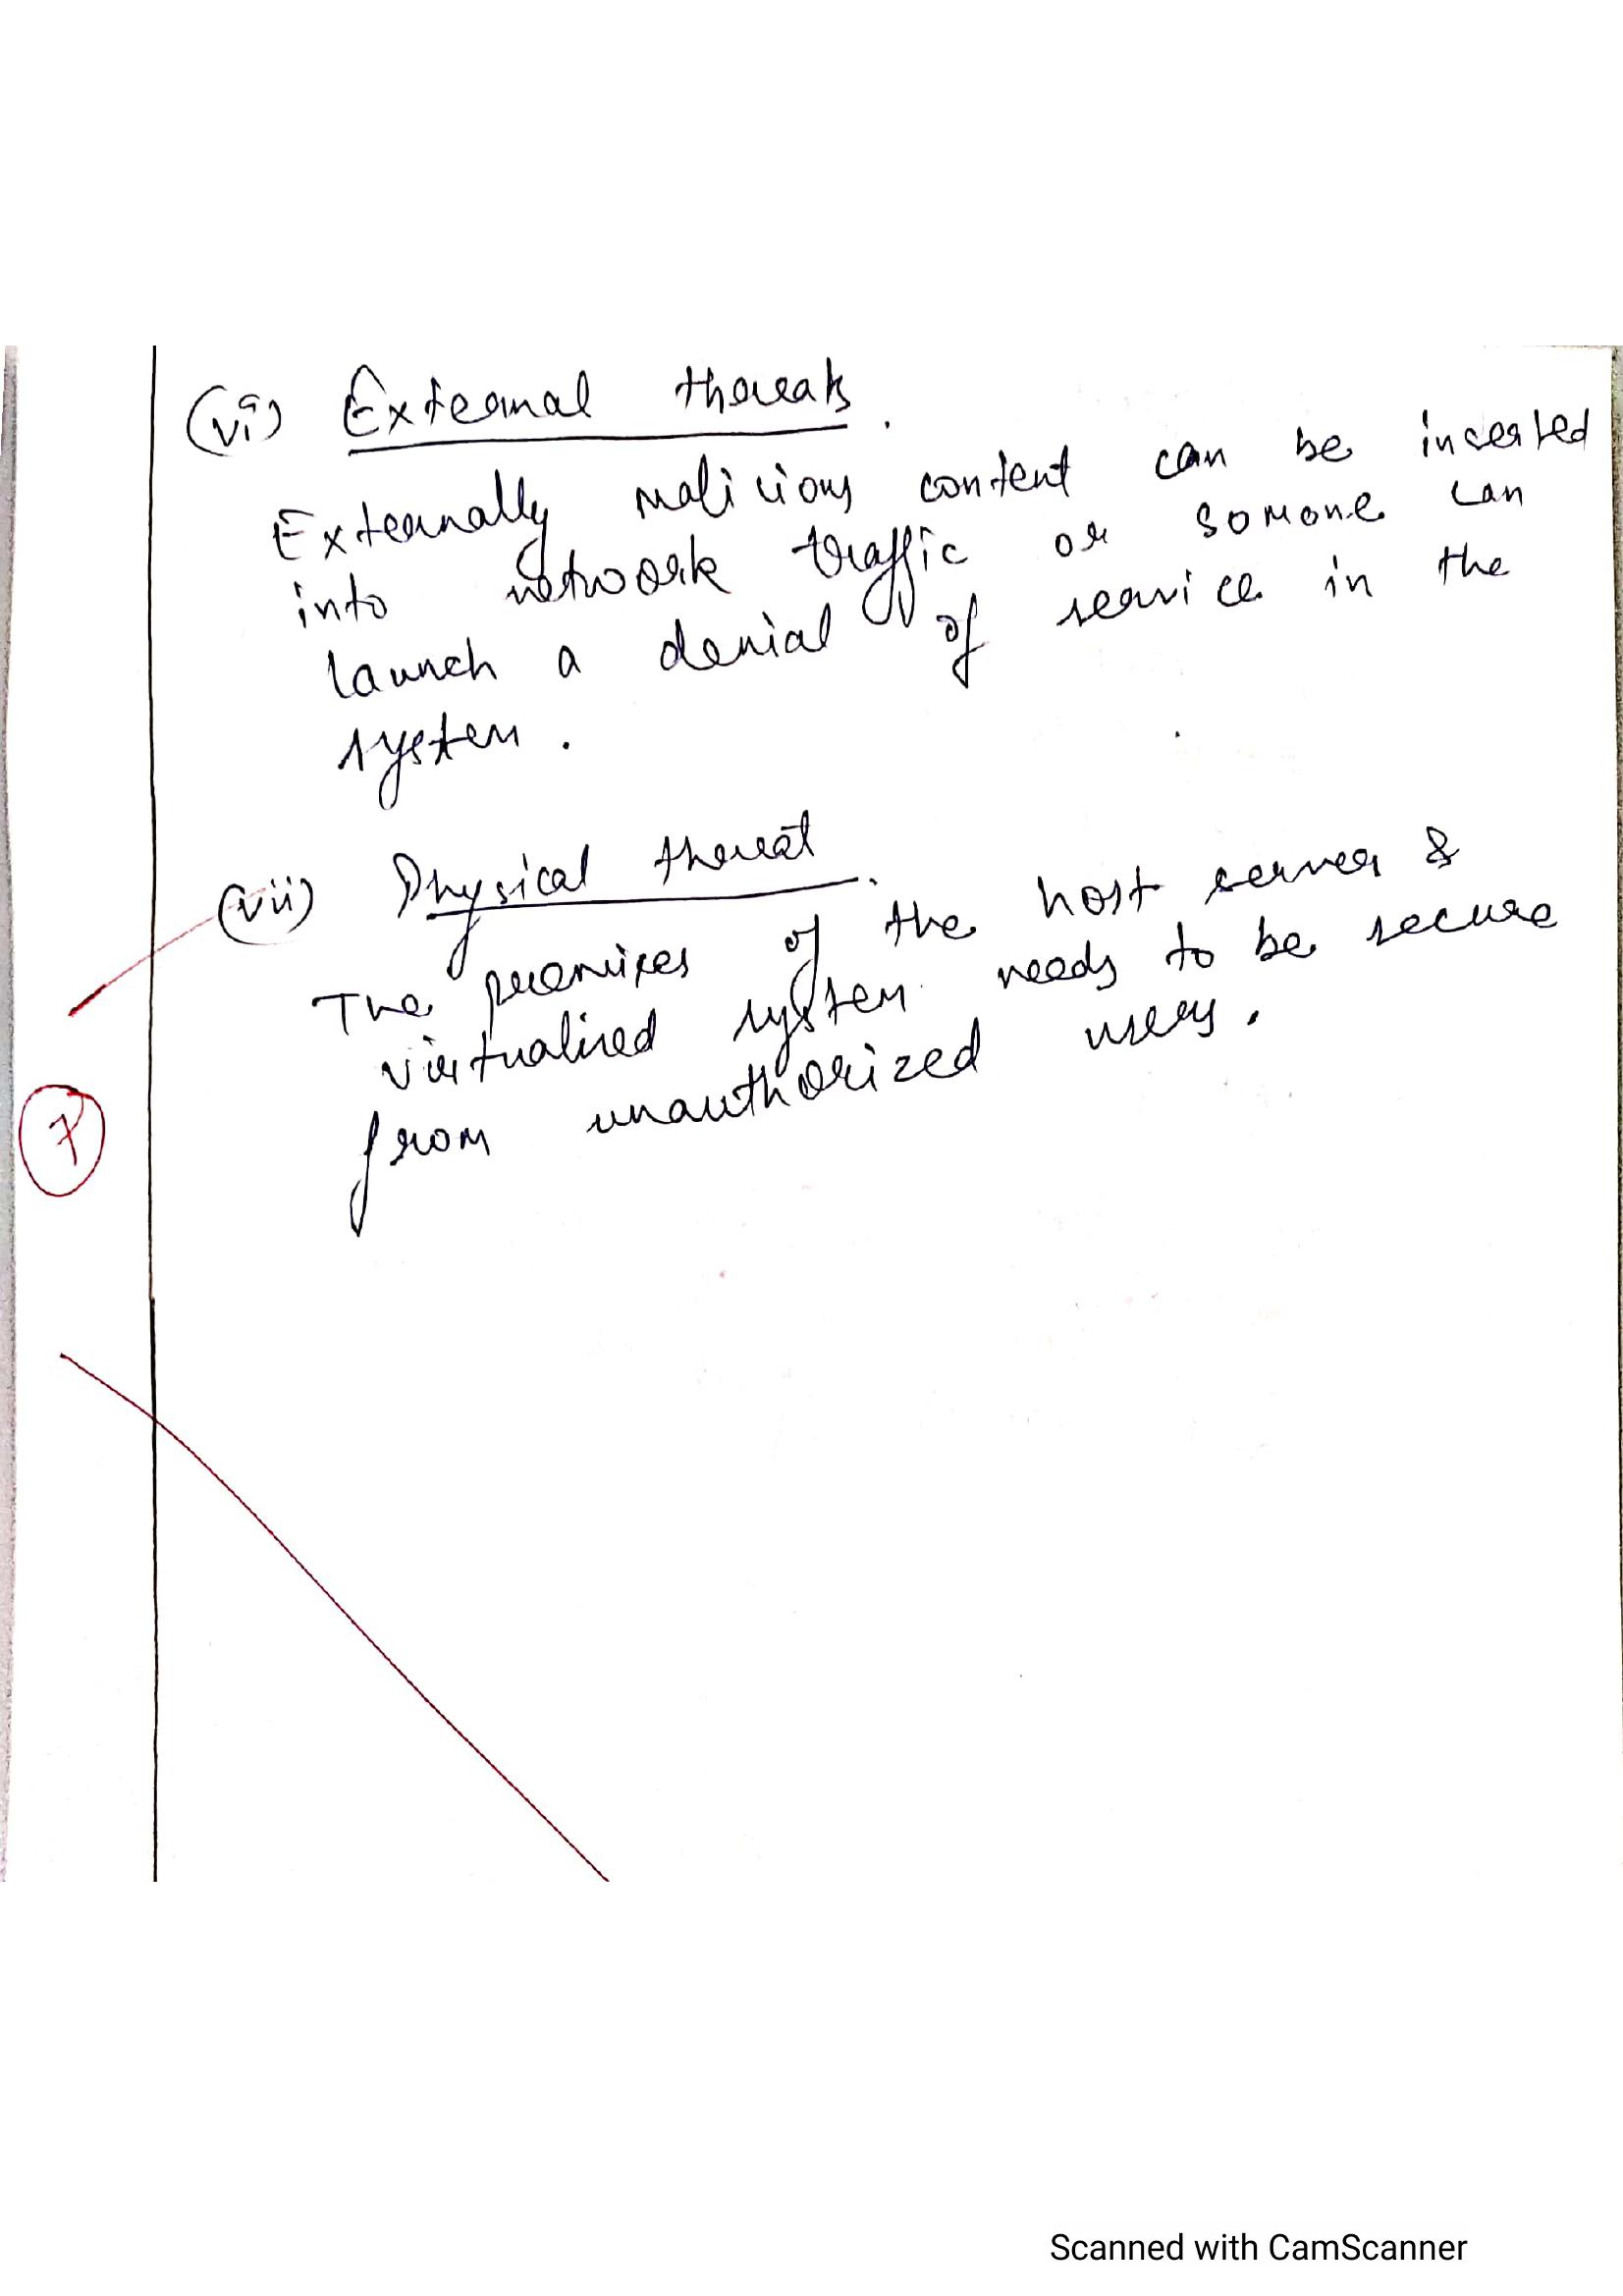 (vi) External threats.
Externally malicious content can be inserted
into network traffic or somone can
launch a denial of service in the
system.
(vii) Physical threat.
The premises of the host server &
virtualised system needs to be secure
from unauthorized users.
7
Scanned with CamScanner